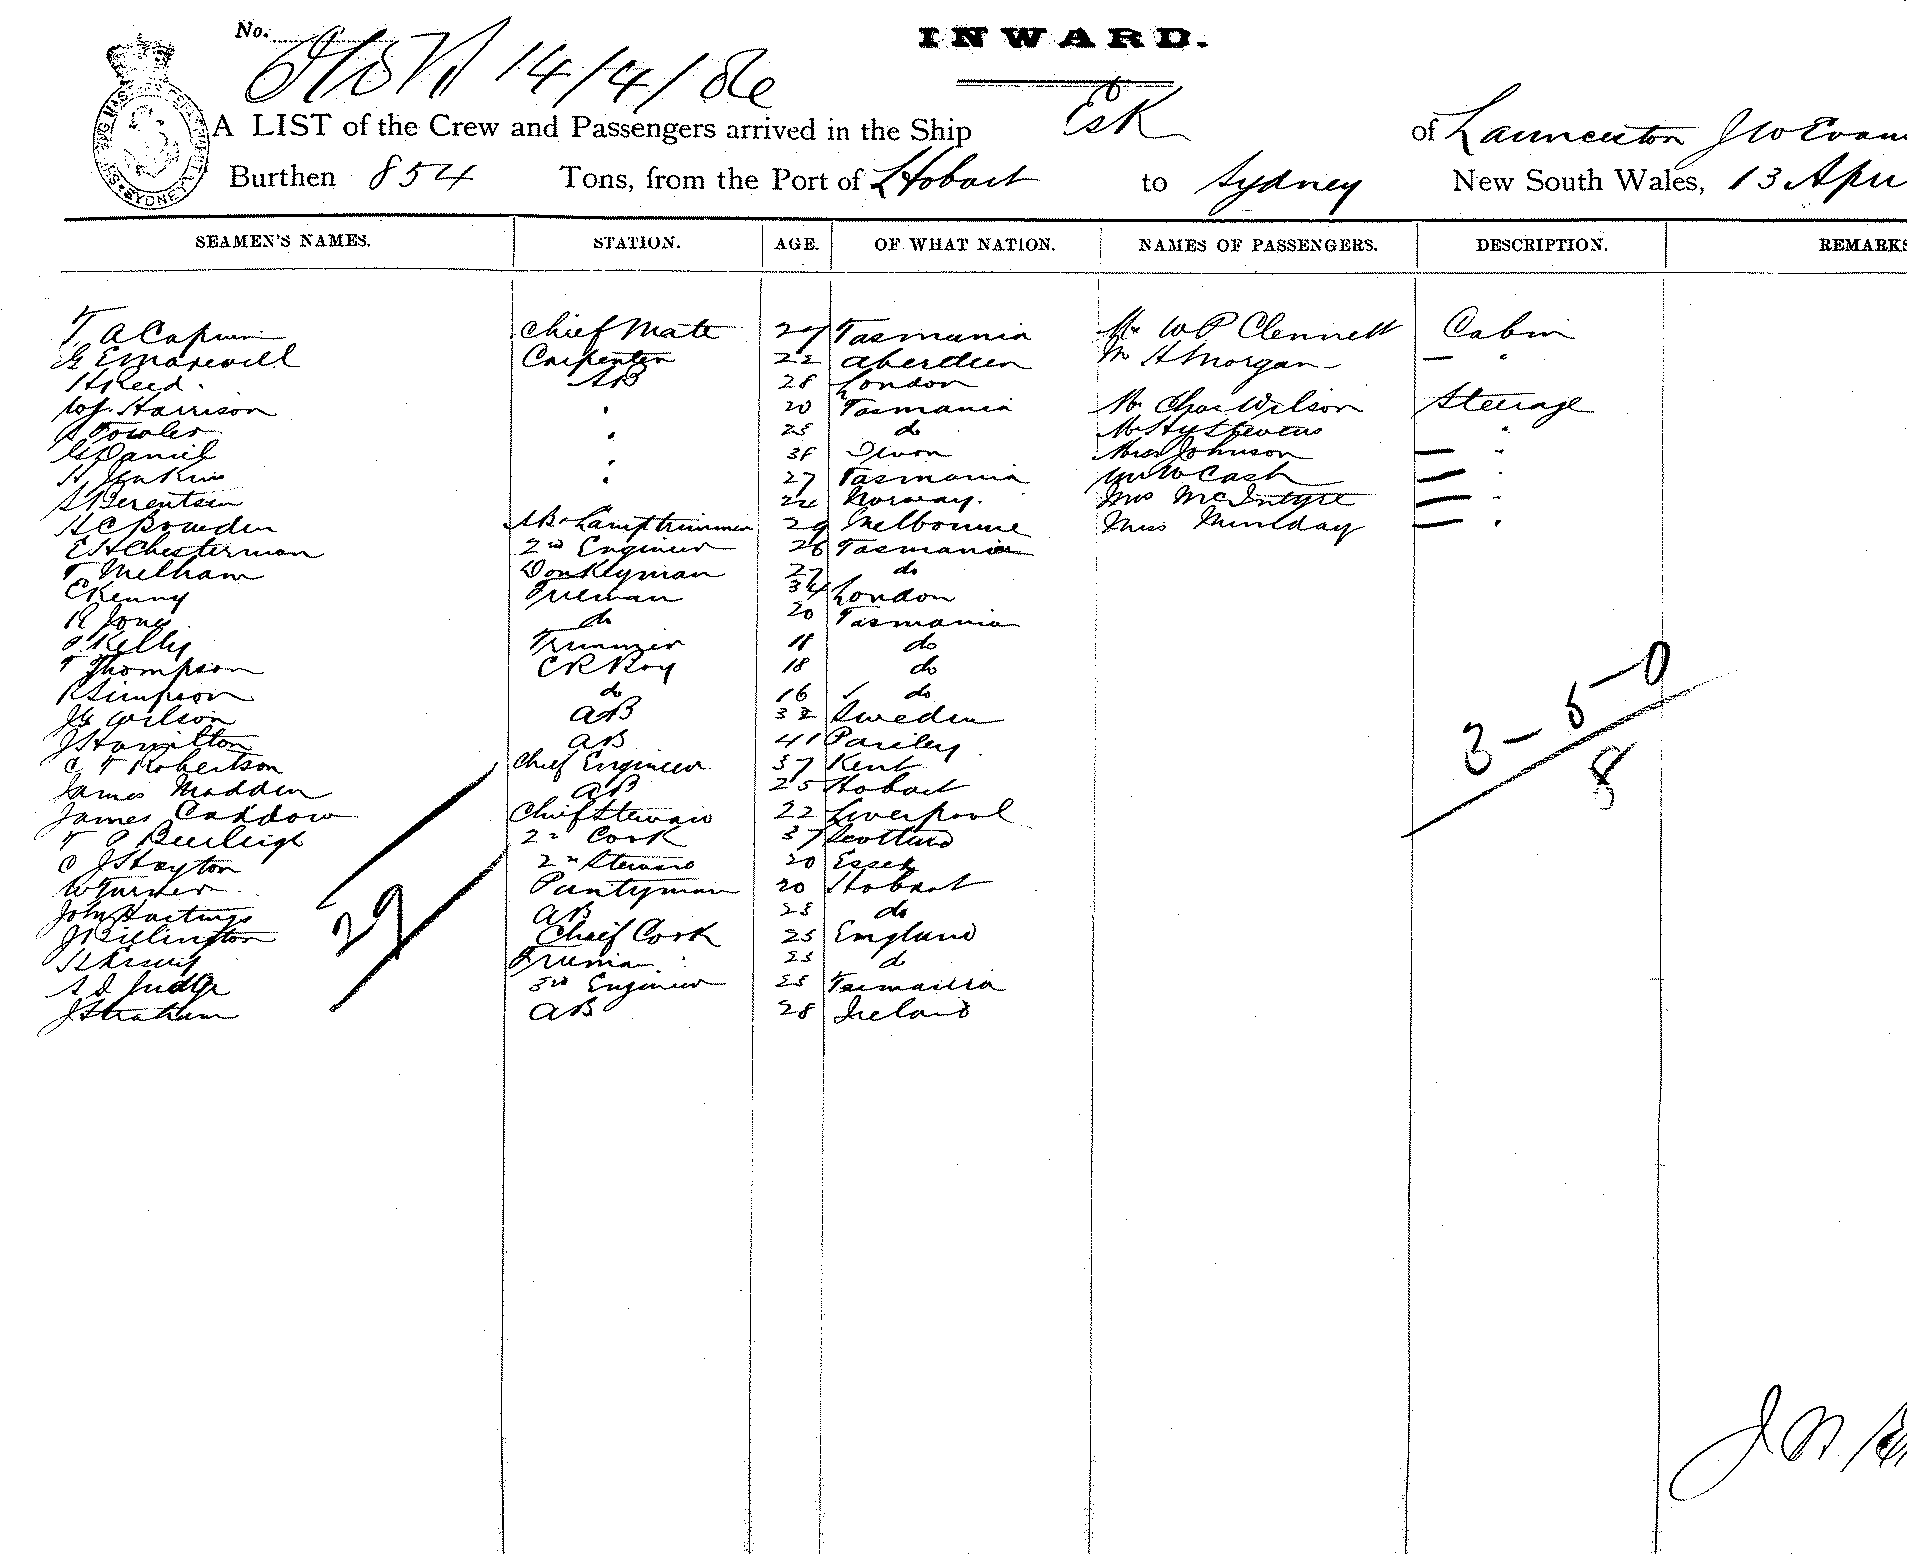 No.
14/4/86
INWARD.
A LIST of the Crew and Passengers arrived in the Ship Esk of Launceston J W Evans
Burthen 854 Tons, from the Port of Hobart to Sydney New South Wales, 13 Apri
SEAMEN'S NAMES. STATION. AGE. OF WHAT NATION. NAMES OF PASSENGERS. DESCRIPTION. REMARKS
T A Capurn Chief Mate 27 Tasmania Mr W P Clennett Cabin
G E Maxewell Carpenter 22 Aberdeen Mr H Morgan — "
H Reed. AB 28 London
W J. Harrison " 20 Tasmania Mr Chas Wilson Steerage
Fowler " 25 do Mr Hy Stevens "
G Daniel " 38 Devon Miss Johnson — "
H Jenkins " 27 Tasmania Mr W Cash — "
Berentsen 24 Norway. Mrs McIntyre — "
H C Bowden AB & Lamptrimmer 29 Melbourne Miss Munday — "
E H Chesterman 2nd Engineer 26 Tasmania
T Melham Donkeyman 27 do
C Kenny Fireman 34 London
R Jones do 20 Tasmania
Kelly Trimmer 18 do
T Thompson 18 do
R Simpson do 16 do
J G Wilson AB 32 Sweden
J Hamilton AB 41 Paisley
C T Robertson Chief Engineer 37 Kent
James Madden AB 25 Hobart
James Cardow Chief Steward 22 Liverpool
T A Burleigh 2nd Cook 37 Scotland
C J Hayton 2nd Steward 20 Essex
W Turner Pantryman 20 Hobart
John Hastings AB 28 do
J Billington Chief Cook 25 England
Firema 23 do
A D Judge 3rd Engineer 25 Tasmania
J Strahan AB 28 Ireland
29
3-5-0
8
J W